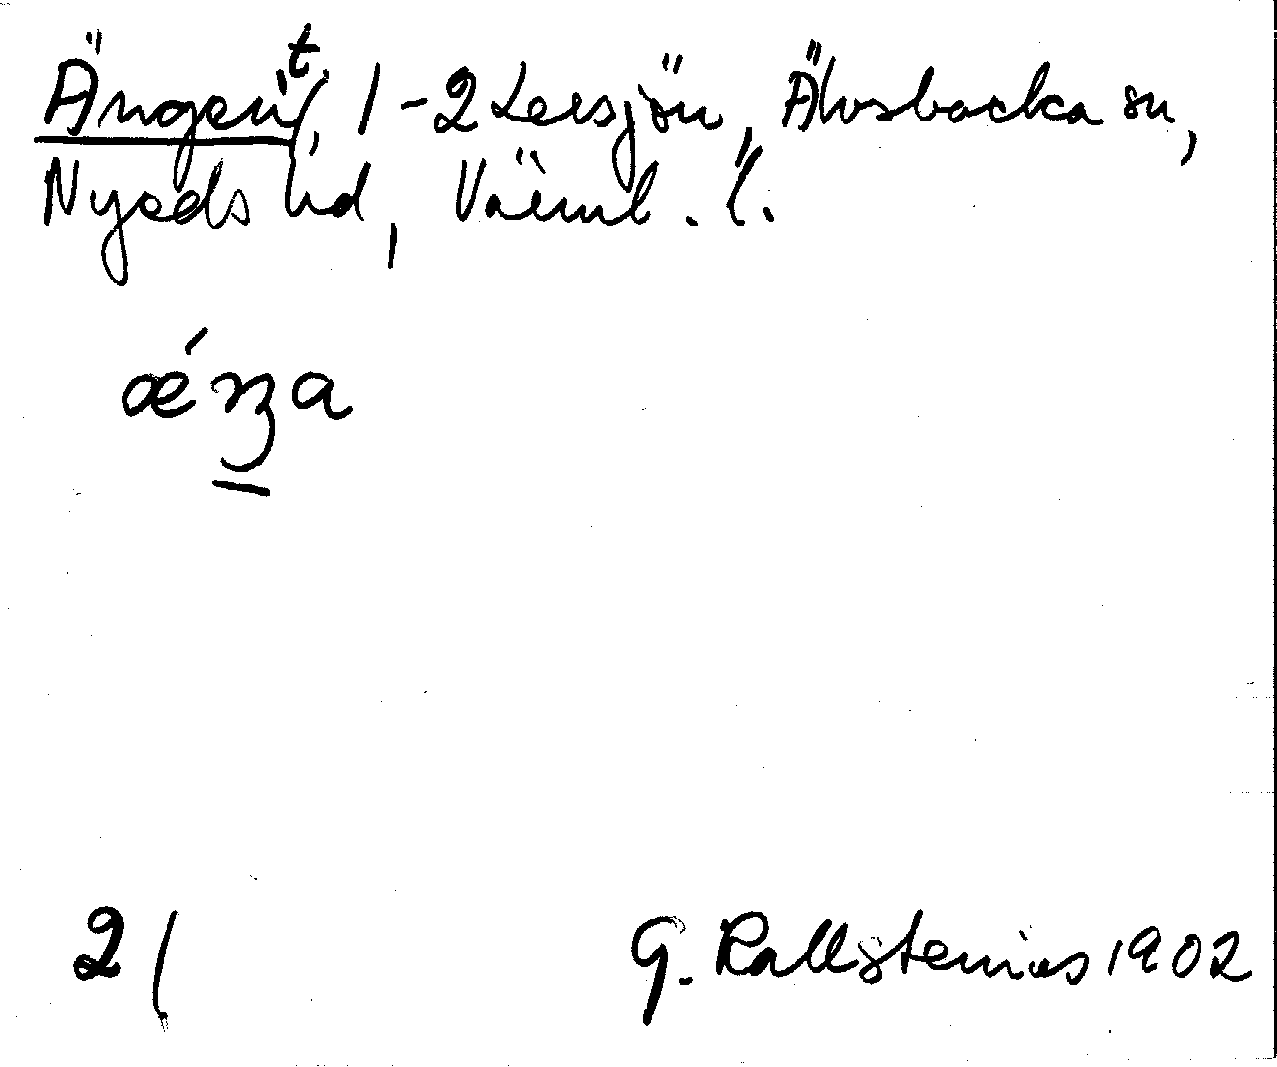 Ängen, t. 1-2 Lersjön, Älvsbacka sn,
Nyeds hd, Värml. l.
ǽŋa
2/
G. Kallstenius 1902